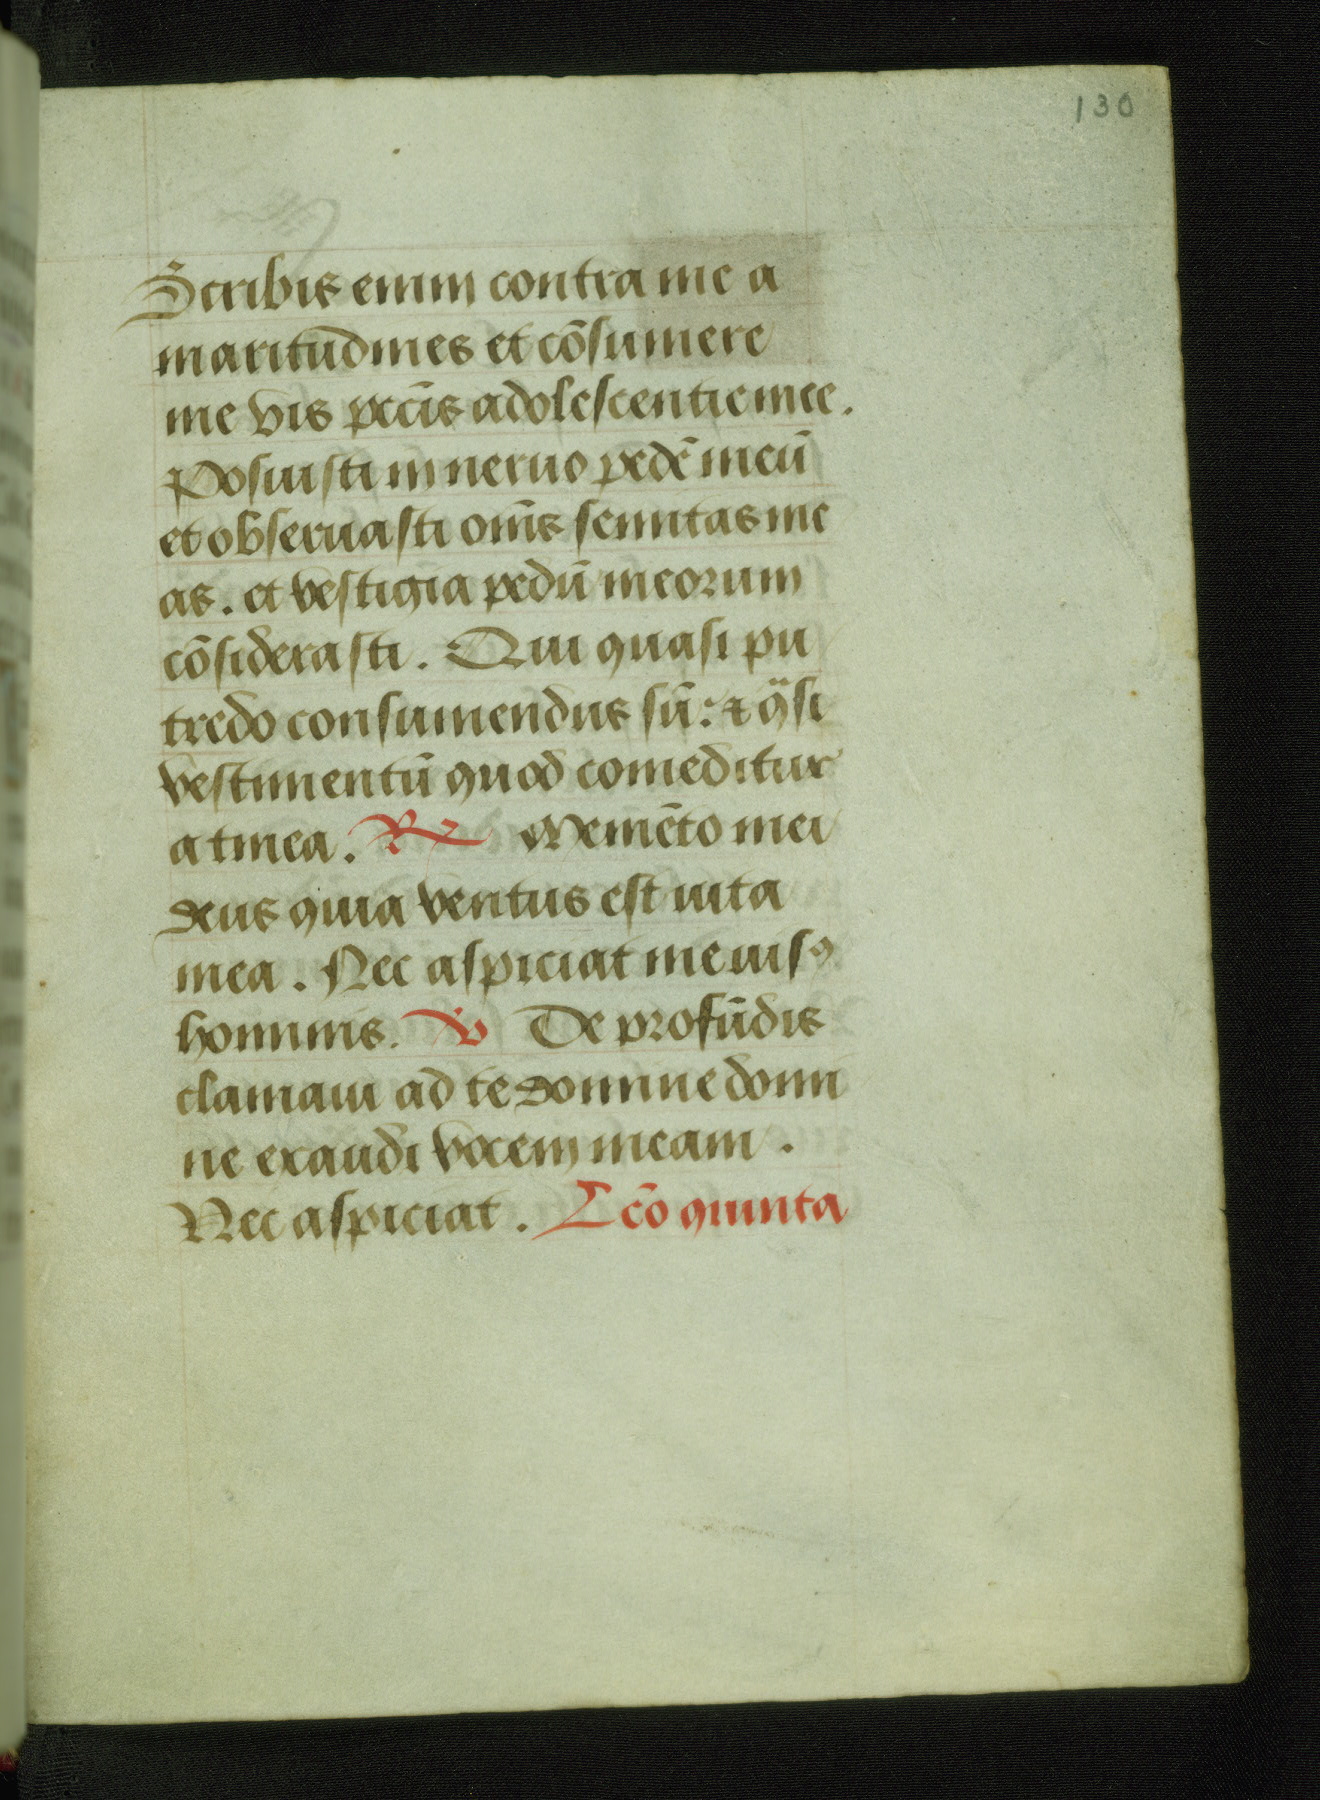 130
Scribis enim contra me a
maritudines et cōsumere
me vis pctīs adolescentie mee.
Posuisti in neruo pedē meū
et obseruasti om̄s semitas me
as. et vestigia pedū meorum
cōsiderasti. Qui quasi pu
tredo consumendus sū: et q̈si
vestimentū quod comeditur
a tinea. ℟ Memēto mei
deus quia ventus est uita
mea. Nec aspiciat me uisꝰ
hominis. ℣ De profūdis
clamaui ad te domine domi
ne exaudi vocem meam.
Nec aspiciat. Lcō quinta